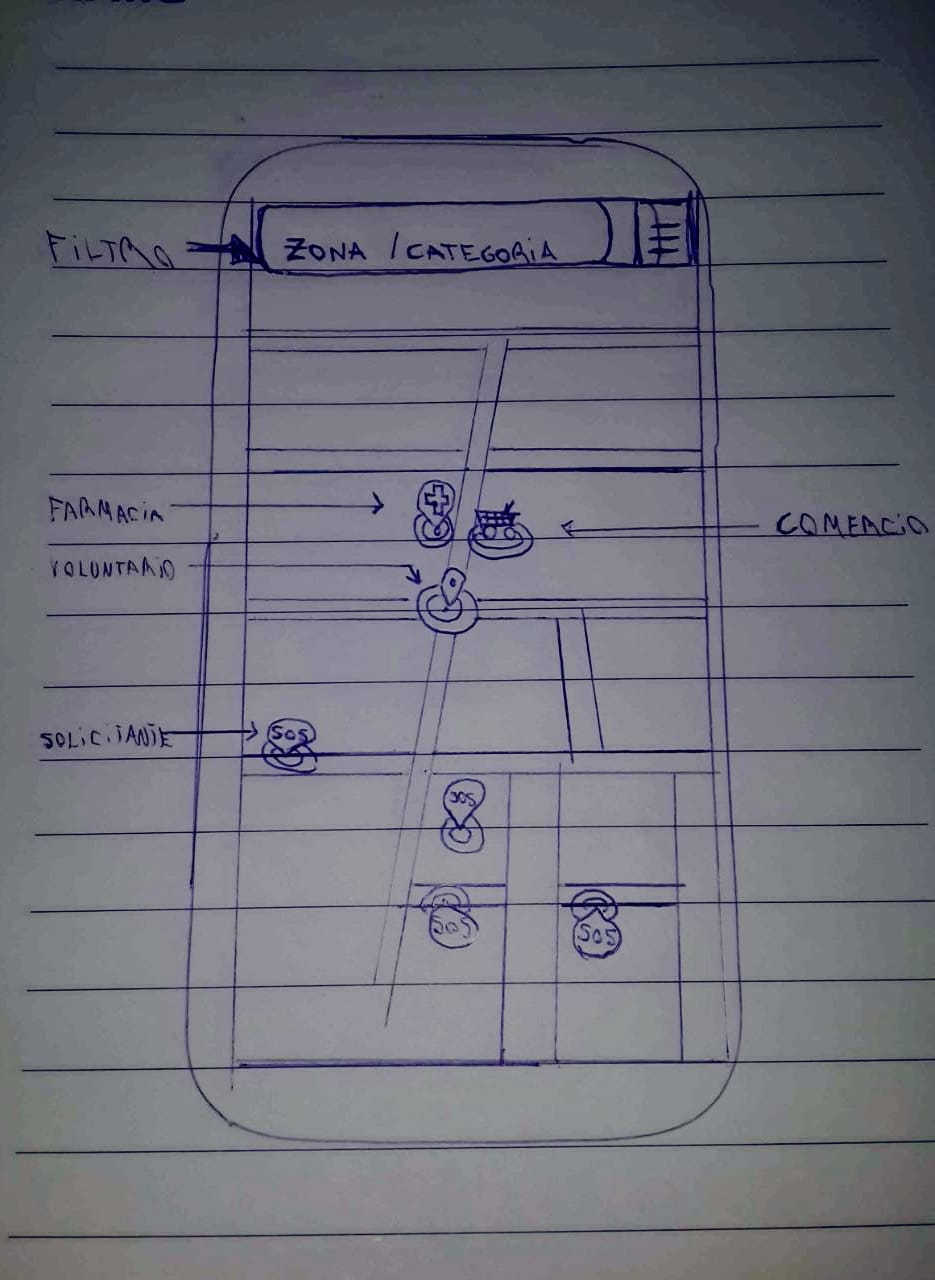 FILTRO
ZONA / CATEGORIA
FARMACIA
COMERCIO
VOLUNTARIO
SOLICITANTE
SOS
SOS
SOS
SOS